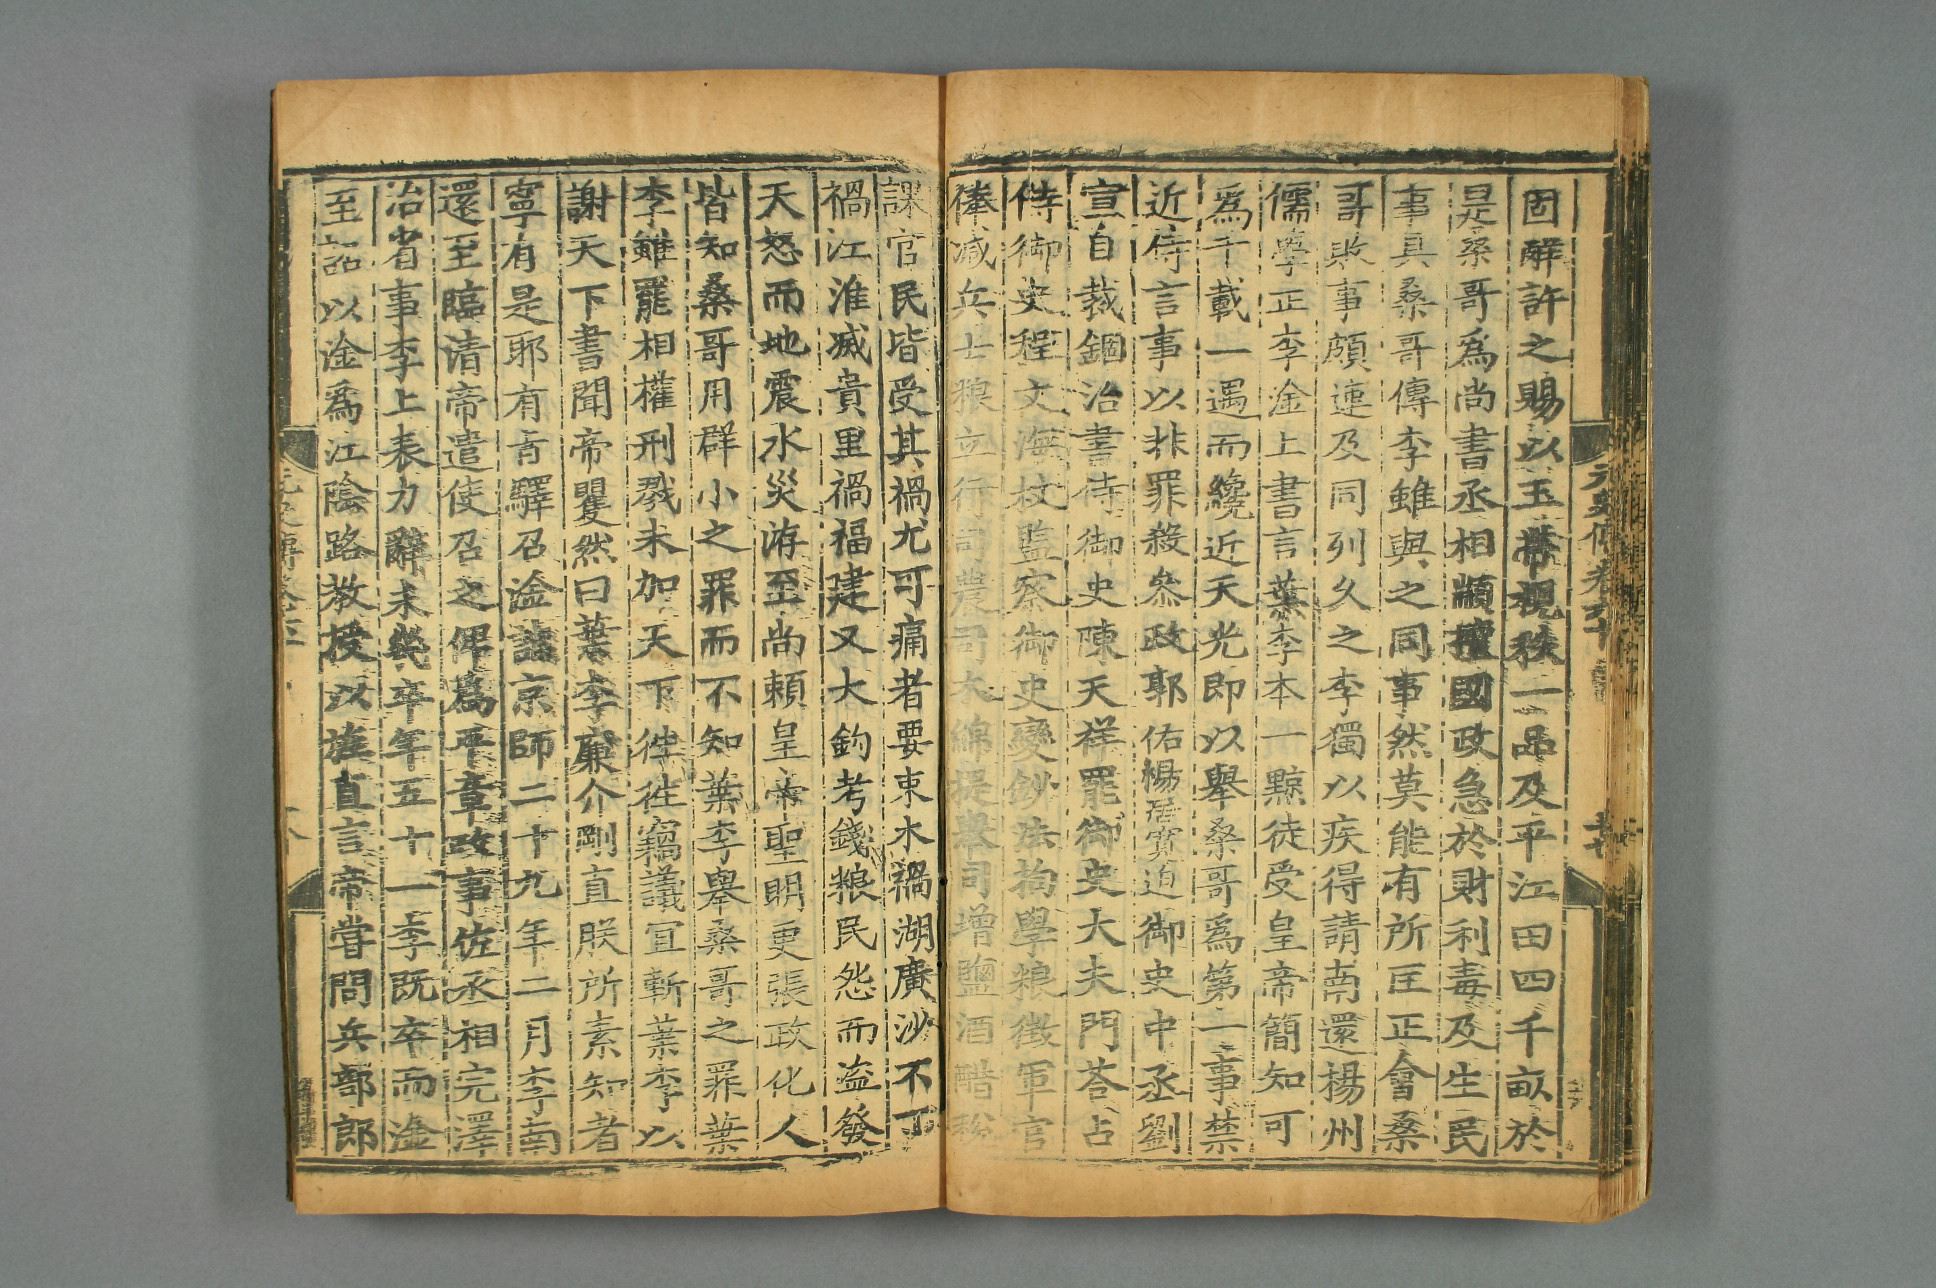 元史傳卷六十
固辭許之賜以玉帶視秩一品及平江田四千畝於
是桑哥爲尚書丞相顓擅國政急於財利毒及生民
事具桑哥傳李雖與之同事然莫能有所匡正會桑
哥敗事頗連及同列久之李獨以疾得請南還揚州
儒學正李淦上書言葉李本一黥徒受皇帝簡知可
爲千載一遇而纔近天光即以舉桑哥爲第一事禁
近侍言事以非罪殺叅政郭佑楊居寬迫御史中丞劉
宣自裁錮治書侍御史陳天祥罷御史大夫門荅占
侍御史程文海杖監察御史變鈔法拘學粮徵軍官
俸减兵士粮立行司農司木綿提舉司增鹽酒醋稅
課官民皆受其禍尤可痛者要束木禍湖廣沙不丁
禍江淮滅貴里禍福建又大鈎考錢粮民怨而盗發
天怒而地震水災洊至尚賴皇帝聖明更張政化人
皆知桑哥用群小之罪而不知葉李舉桑哥之罪葉
李雖罷相權刑戮未加天下徃徃竊議宜斬葉李以
謝天下書聞帝矍然曰葉李廉介剛直朕所素知者
寧有是耶有旨驛召淦詣京師二十九年二月李南
還至臨清帝遣使召之俾爲平章政事佐丞相完澤
治省事李上表力辭未幾卒年五十一李既卒而淦
至詔以淦爲江陰路教授以旌直言帝嘗問兵部郎